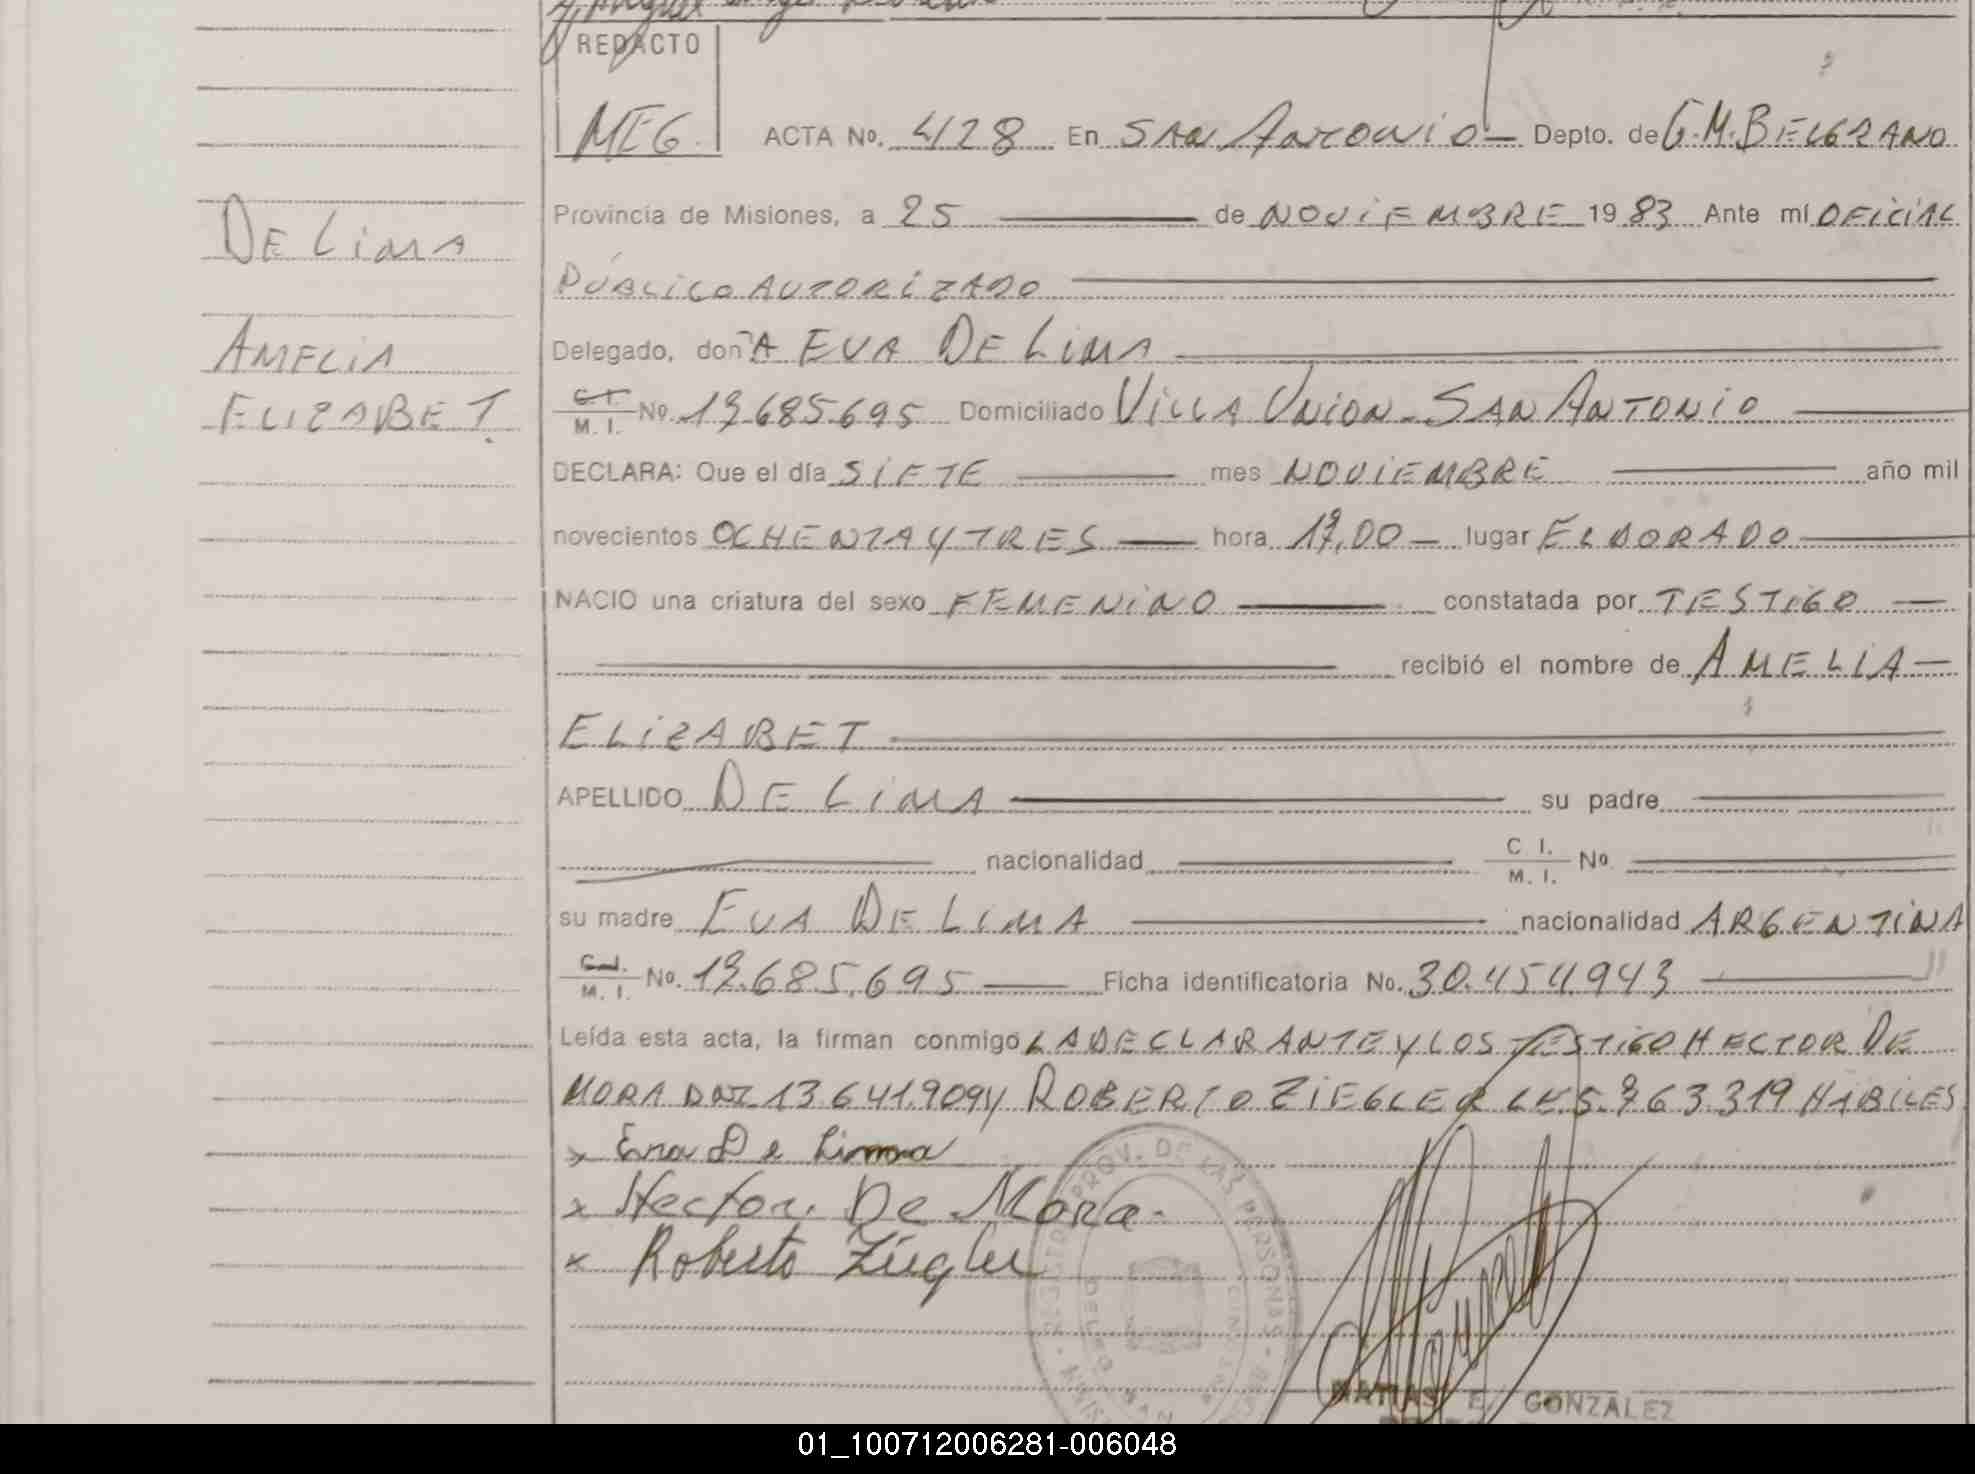 REDACTO
MEG.
ACTA No. 428 En SAN ANTONIO Depto. de G.M. BELGRANO
Provincia de Misiones, a 25 de NOVIEMBRE 19 83 Ante mí OFICIAL
PÚBLICO AUTORIZADO
DE LIMA
AMELIA
ELIZABET.
Delegado, doñA EVA DE LIMA
C.I. M. I. No. 19.685.695 Domiciliado VILLA UNION - SAN ANTONIO
DECLARA: Que el día SIETE mes NOVIEMBRE año mil
novecientos OCHENTA Y TRES hora lugar ELDORADO
NACIO una criatura del sexo FEMENINO constatada por TESTIGO
recibió el nombre de AMELIA
ELIZABET
APELLIDO DE LIMA su padre
nacionalidad C I. M. I. No.
su madre EVA DE LIMA nacionalidad ARGENTINA
C.I. M. I. No. 19.685.695 Ficha identificatoria No. 30.454.943
Leída esta acta, la firman conmigo LA DECLARANTE Y LOS TESTIGO HECTOR DE
MORA DNI 13.641.909 Y ROBERTO ZIEGLER HABILES
x Eva De Lima
x Hector. De Mora.
x Roberto Ziegler
REGISTRO PROV. DE LAS PERSONAS
MATIAS E. GONZALEZ
01_100712006281-006048